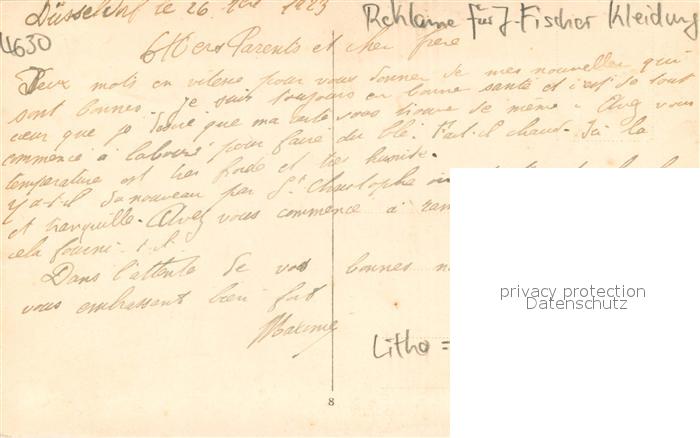 Düsseldorf le 26 9bre 1923
Reklame für J. Fischer Kleidung
4630
Chers Parents et cher frère
Deux mots en vitesse pour vous donner de mes nouvelles qui
sont bonnes. je suis toujours en bonne santé et c'est de tout
cœur que je désire que ma carte vous trouve de même. Avez vous
commencé a labouré pour faire du blé. Fait-il chaud. Ici la
temperature est très froide et très humide.
y a-t-il du nouveau par St Christophe
et tranquille. Avez vous commencé à ram
cela fourni-t-il.
Dans l'attente de vos bonnes n
vous embrassant bien fort
Maxime
Litho =
8
privacy protection
Datenschutz